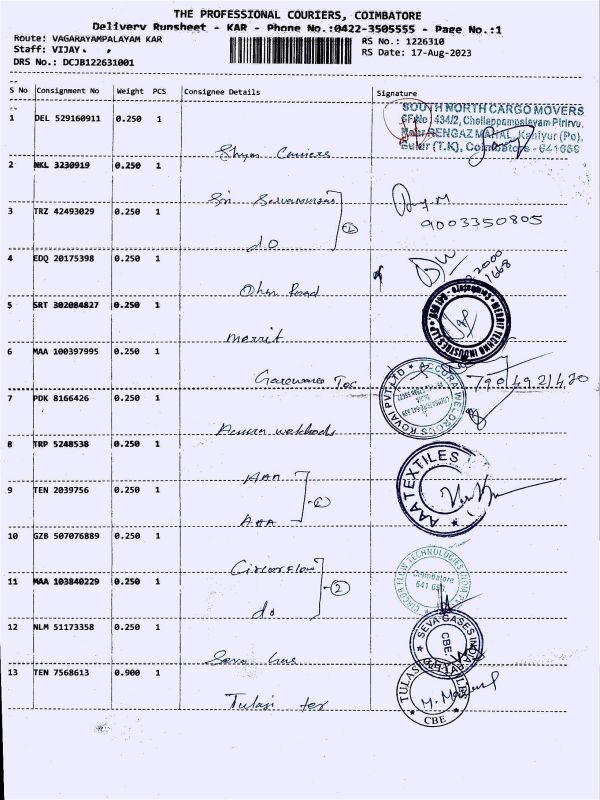 THE PROFESSIONAL COURIERS, COIMBATORE
Delivery Runsheet - KAR - Phone No.:0422-3505555 - Page No.:1
Route: VAGARAYAMPALAYAM KAR
RS No.: 1226310
Staff: VIJAY.
RS Date: 17-Aug-2023
DRS No.: DCJB122631001
S No Consignment No Weight PCS Consignee Details Signature
1 DEL 529160911 0.250 1
SOUTH NORTH CARGO MOVERS
SF.No: 434/2, Chellappampalayam Pirivu,
Near RENGAZ MAHAL, Kaniyur (Po),
Sulur (T.K), Coimbatore - 641659
Couriers
2 NKL 3230919 0.250 1
Sri
3 TRZ 42493029 0.250 1
9003350805
do
4 EDQ 20175398 0.250 1
Road
5 SRT 302084827 0.250 1
MERRIT TECHNO INDUSTRIES LLP
Merrit
6 MAA 100397995 0.250 1
Tec
7 PDK 8166426 0.250 1
ACCURA WELDRODS KOVAI PVT LTD
Accura weldrods
8 TRP 5248538 0.250 1
AAA TEXTILES
AAA
9 TEN 2039756 0.250 1
AAA
10 GZB 507076889 0.250 1
CIRCOR FLOW TECHNOLOGIES INDIA
Coimbatore
Circor flow
11 MAA 103840229 0.250 1
2
do
12 NLM 51173358 0.250 1
SEVA GASES INDIA
CBE
Seva Gas
13 TEN 7568613 0.900 1
TULASI
CBE
Tulasi tex